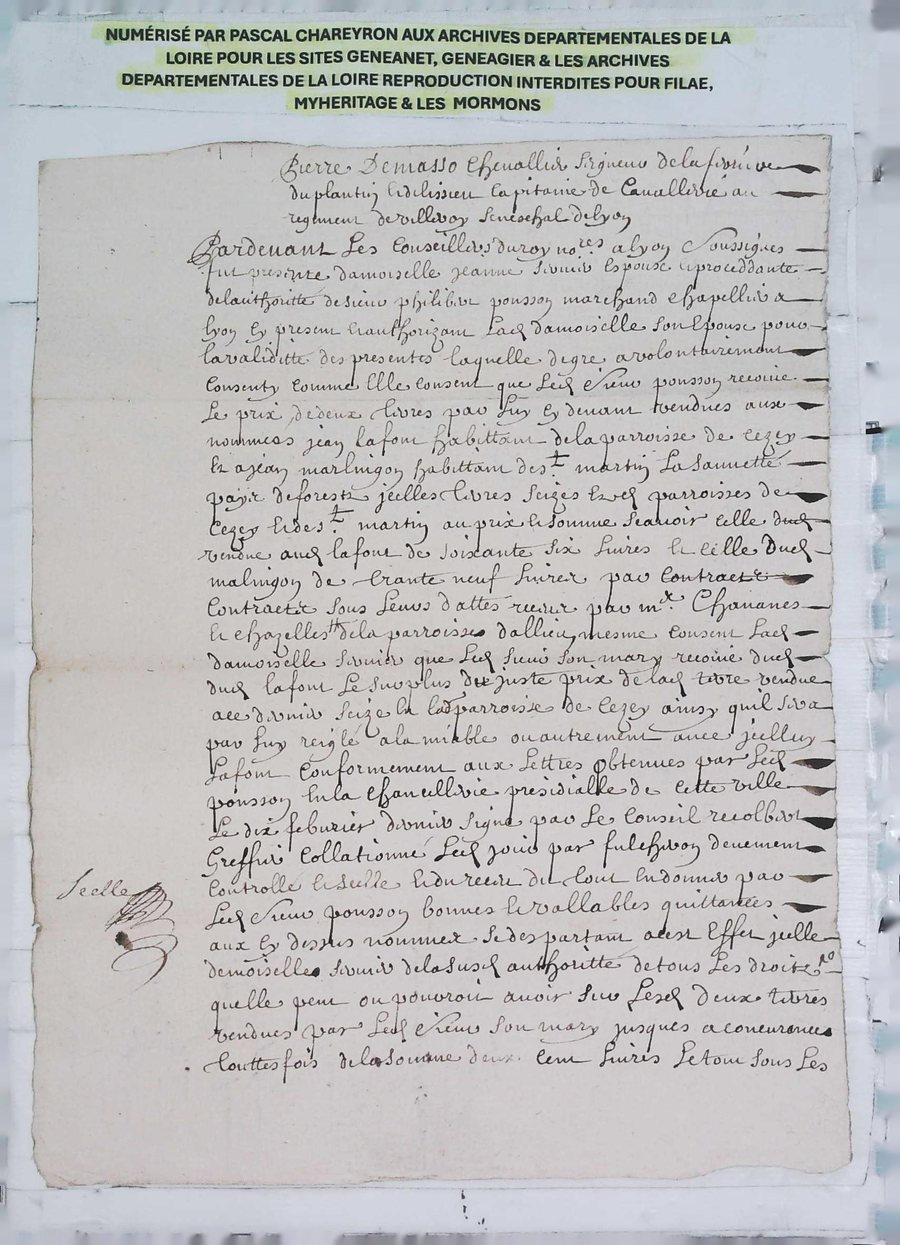 NUMÉRISÉ PAR PASCAL CHAREYRON AUX ARCHIVES DEPARTEMENTALES DE LA
LOIRE POUR LES SITES GENEANET, GENEAGIER & LES ARCHIVES
DEPARTEMENTALES DE LA LOIRE REPRODUCTION INTERDITES POUR FILAE,
MYHERITAGE & LES MORMONS
Pierre Demasso Chevallier Seigneur de la
du plantin Capitaine de Cavallerie au
regiment de villeroy Seneschal de lyon
Pardevant Les Conseillers du roy no.res a lyon Soussignes
fut presente damoiselle jeanne espouse et proceddante
de lauthoritte de sieur philibert pousson marchand chapellier a
lyon Cy present et authorizant Lad damoiselle son Epouse pour
la validitte des presentes laquelle de gre a volontairement
Consenty comme Elle consent que Led Sieur pousson recoive
Le prix de deux terres par Luy Cy devant vendues aux
nommees jean lafont habittant de la parroisse de Cezey
Et a jean malingon habittant de s.t martin La Sauvetté
païs de forestz jcelles terres seizes Esd parroisses de
Cezey Et de s.t martin au prix et somme scavoir celle dud
vendue aud lafont de soixante six livres et celle dud
malingon de trante neuf livres par contractz
Contractz sous Leurs dattes receus par m.es Chavanes
et chazelles de la parroisse dallieu, mesme consent Lad
damoiselle que Led Sieur son mary recoive dud
dud lafont Le surplus du juste prix de lad terre vendue
seize en lad parroisse de Cezey ainsy quil sera
par Luy reiglé a lamiable ou autrement avec jcelluy
Lafont conformement aux Lettres obtenues par Led
pousson En la chancellerie presidialle de cette ville
Le dix feburier dernier signé par Le Conseil recolbert
Greffier Collationné Led jour par fulchiron devement
Controllé et scellé et du receu du tout En donner par
Led Sieur pousson bonnes et vallables quittances
aux Cy dessus nommez se despartant a cest Effet jcelle
demoiselle de la susd authoritte de tous Les droitz
quelle peut ou pouvroit avoir sur Lesd deux terres
vendues par Led Sieur son mary jusques a concurance
touttesfois de la somme deux cent livres Le tout sous Les
Scelle